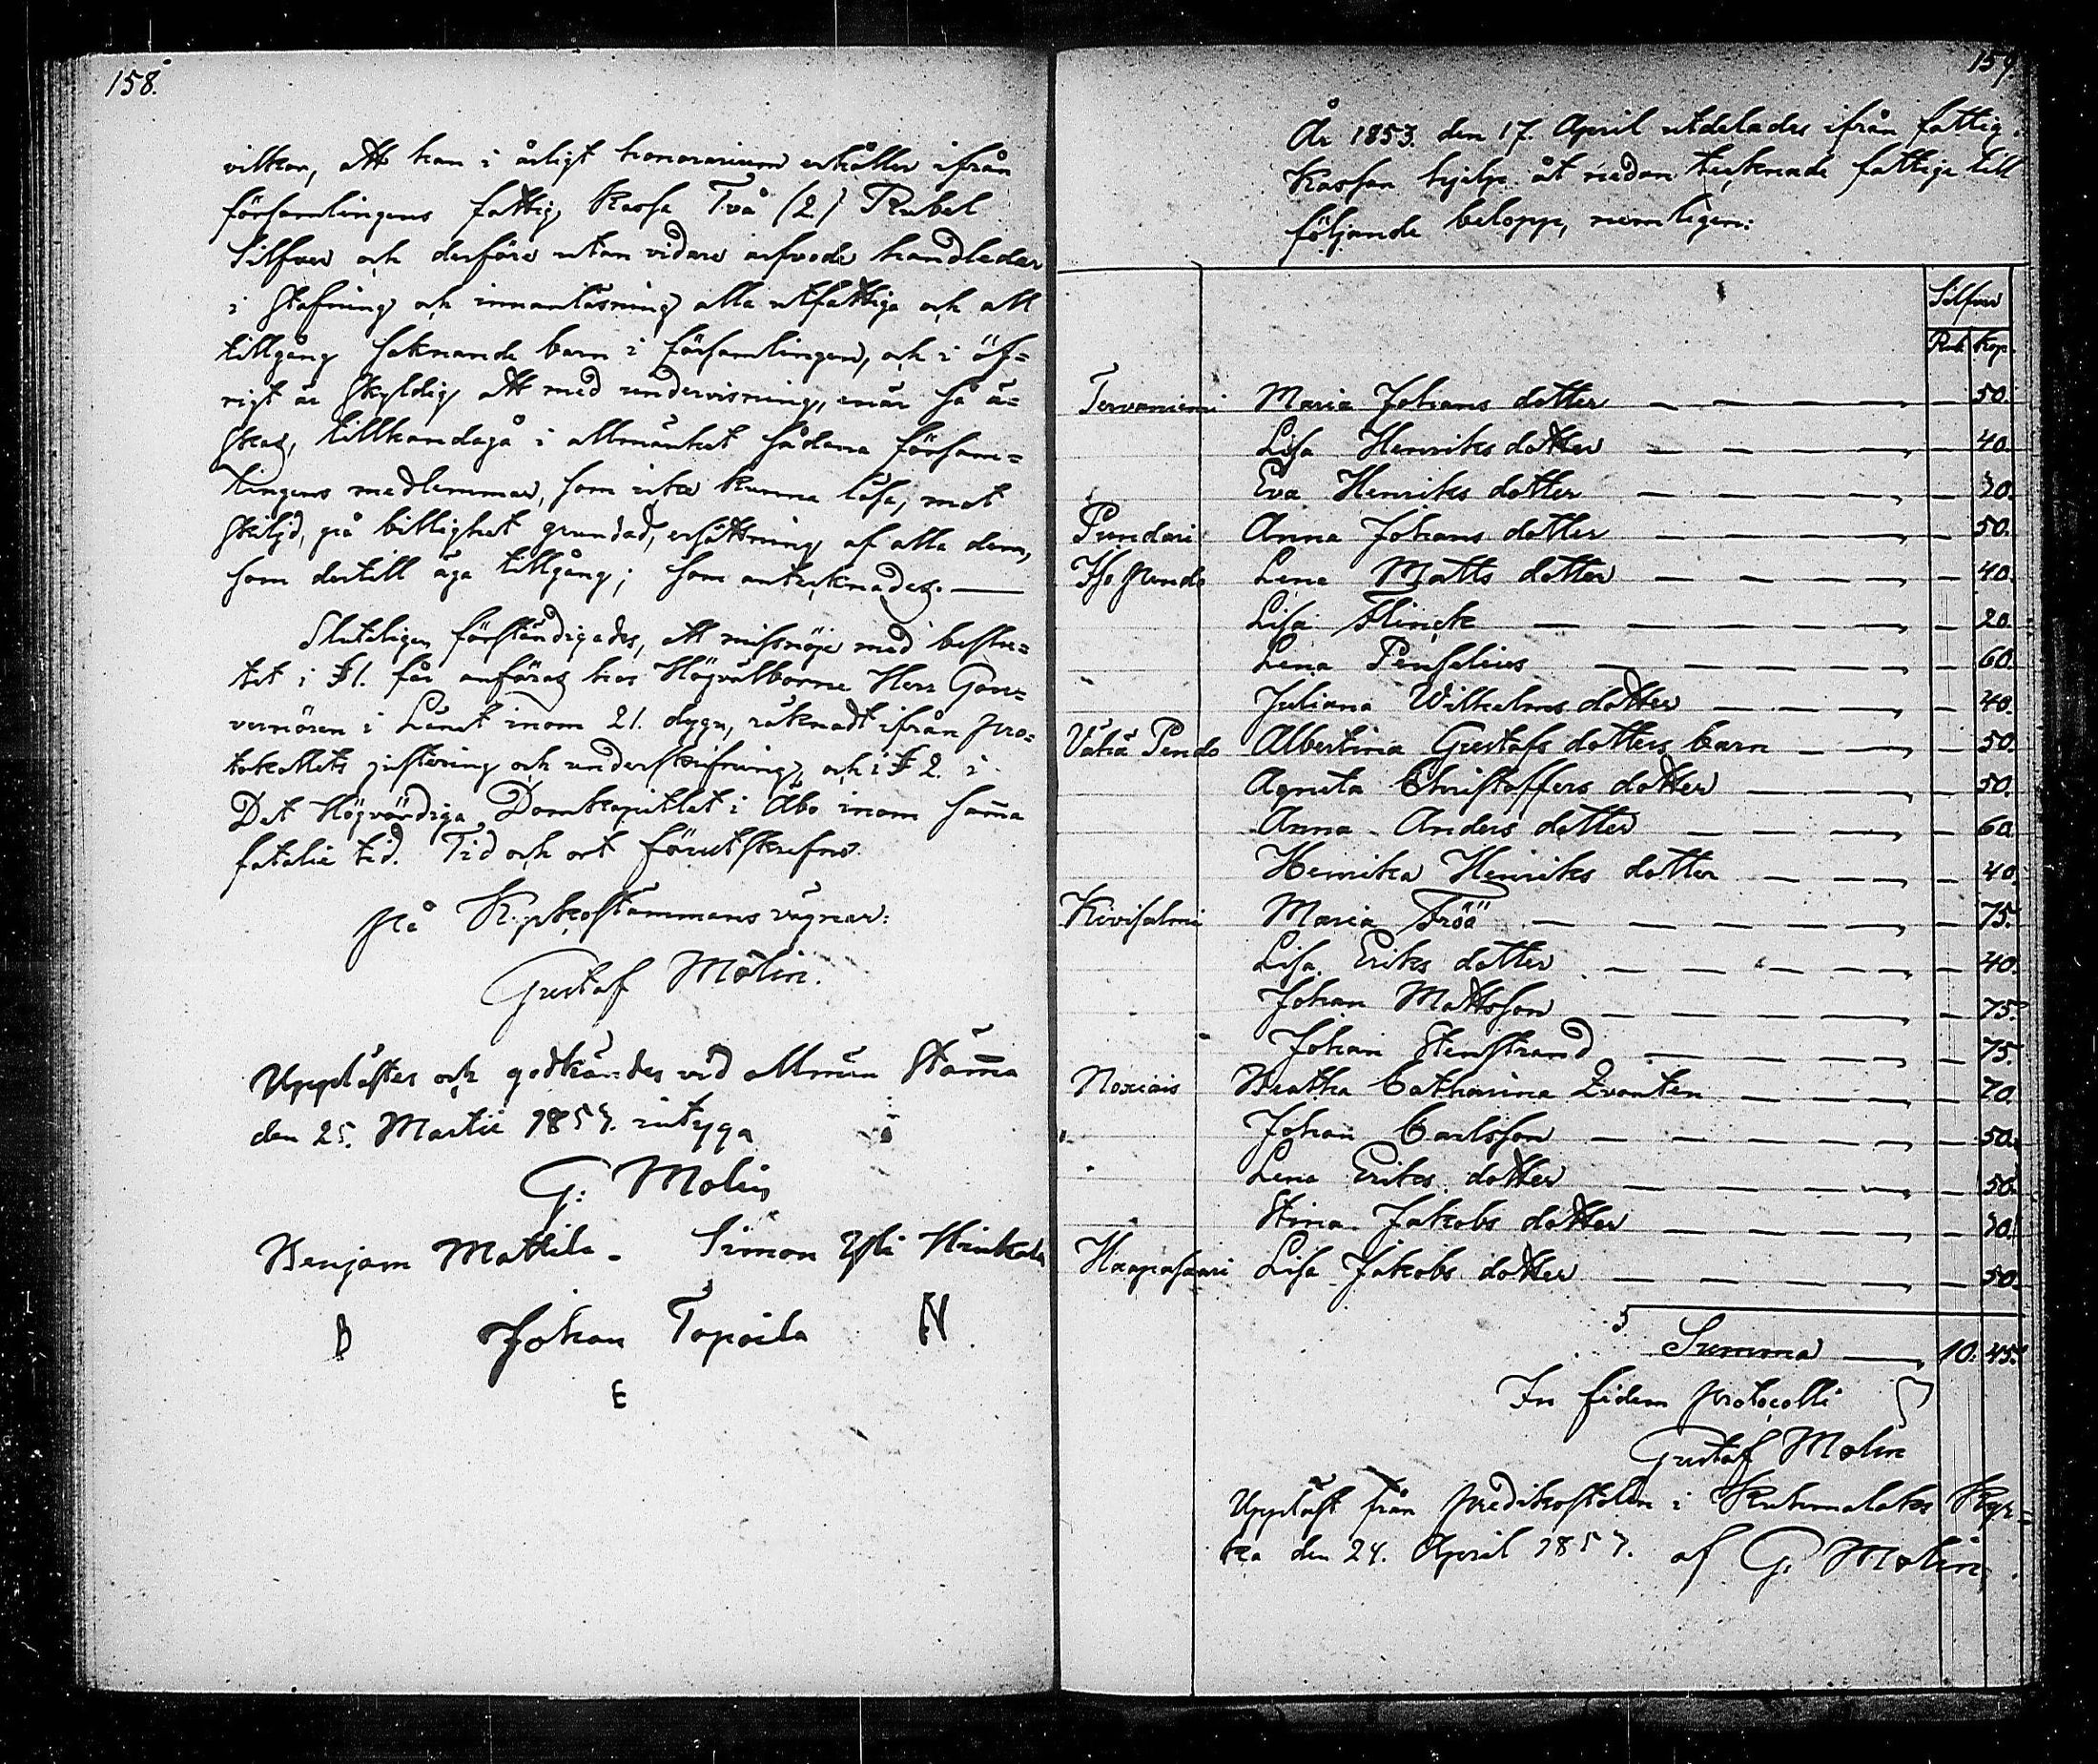 158.
vilkor, att han i årligt honorarium erhåller ifrån
församlingens fattig kassa Två (2) Rubel
Silfver och derföre utan vidare arfvode handleder
i stafning och innanläsning alla utfattiga och all
tillgång saknande barn i församlingen, och i öf=
rigt är skyldig att med undervisning, när så ä=
skas, tillhandagå i allmänhet sådana försam=
lingens medlemmar, som icke kunna läsa, mot
skiljd, på billighet grundad, ersättning af alla dem,
som dertill äga tillgång; som antecknades. —
Sluteligen förständigades, att missnöje med beslu=
tet i § 1. får anföras hos Högvälborne Herr Gou=
vernören i Länet inom 21. dygn, räknadt ifrån pro=
tokollets justering och underskrifning, och i § 2. i
Det Högvördiga Domkapitlet i Åbo inom samma
fatalie tid. Tid och ort förutskrefne.
På Kyrkostämmans vägnar:
Gustaf Molin.
Upplästes och godkändes vid allmän Stämma
den 25. Martii 1853. intyga
G. Molin
Benjam Mattila. Simon Yli Hinkala
B Johan Tapoila N
E
159.
År 1853. den 17. April utdelades ifrån fattig
Kassan hjelp åt nedan tecknade fattige till
följande belopp, nemligen:
Silfver
Rub Kop.
Tervaniemi Maria Johans dotter — 50.
Lisa Henriks dotter — 40.
Eva Henriks dotter — 20.
Pundari Anna Johans dotter — 50.
Iso Pendo Lena Matts dotter — 40.
Lisa Flinck — 20.
Lena Penselius — 60.
Juliana Wilhelms dotter — 40.
Vähä Pendo Albertina Gustafs dotters barn — 50.
Agneta Christoffers dotter — 50.
Anna Anders dotter — 60.
Henrika Henriks dotter — 40.
Kivisalmi Maria Fröö — 75.
Lisa Eriks dotter — 40.
Johan Mattsson — 75.
Johan Stenstrand — 75.
Noxiais Beatha Catharina — 70.
Johan Carlsson — 50.
Lena Eriks dotter — 50.
Stina Jakobs dotter — 30.
Haapasaari Lisa Jakobs dotter — 50.
Summa — 10. 45.
In fidem protocolli
Gustaf Molin
Uppläst från predikostolen i Kuhmalaks Kyr=
ka den 24. April 1853. af G. Molin.